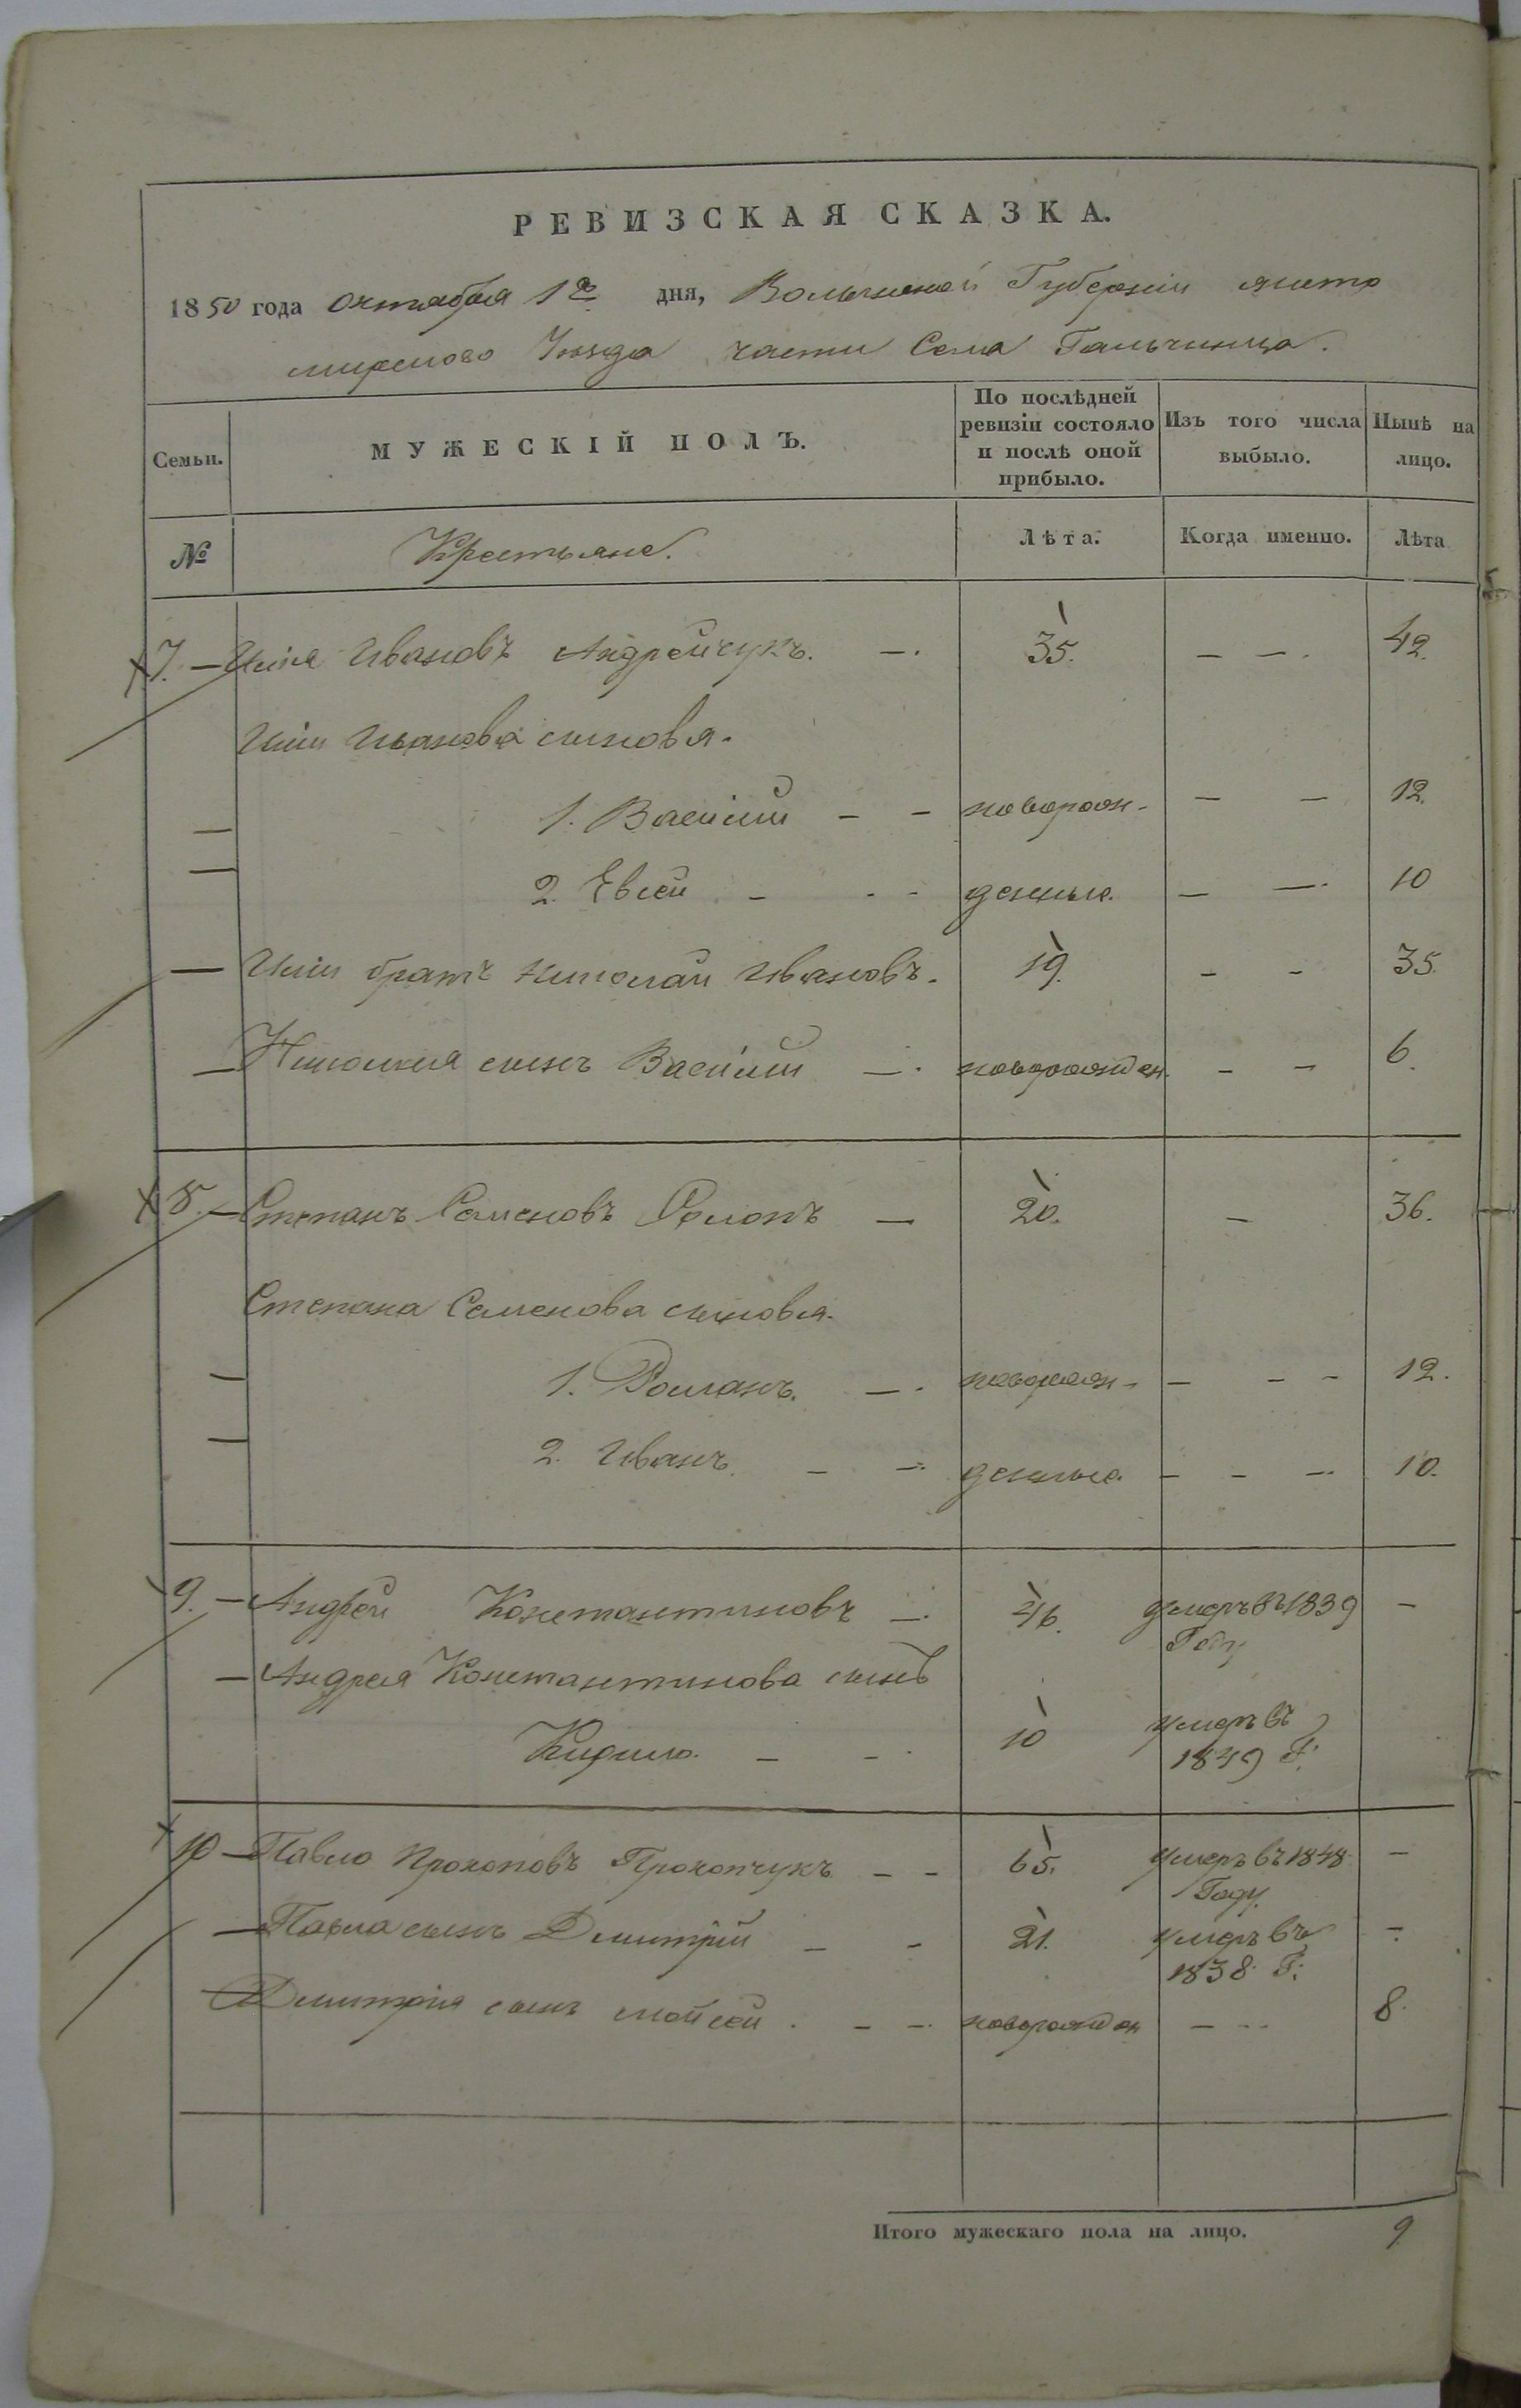 РЕВИЗСКАЯ СКАЗКА.
1850 года октября 1го дня, Волынской Губернии Жито
мирского Уезда части Села Гальчинца.
Семьи. МУЖЕСКІЙ ПОЛЪ. По послѣдней ревизіи состояло и послѣ оной прибыло. Изъ того числа выбыло. Нынѣ на лицо.
№ Крестьяне. Лѣта. Когда именно. Лѣта
7. — Илія Ивановъ Андрейчукъ. —. 35. — —. 42.
Иліи Иванова сыновья.
1. Василий — — новорож- — — 12.
2. Евсей — - - денные. — —. 10
Иліи братъ Николай Ивановъ. 19. - - 35.
Николая сынъ Василий —. новорожден. - - 6.
8. — Степанъ Семеновъ — 20. — 36.
Степана Семенова сыновья.
1. Романъ. —. новорож- — - - 12.
2. Иванъ. — —. денные. - - —. 10.
9. — Андрей Константиновъ —. 46. умеръ въ 1839 —
Году
— Андрея Константинова сынъ
Кирило. — -. 10 умеръ въ
1849 Г.
10 — Павло Прокоповъ Прокопчукъ — - 65. умеръ въ 1848 —
Году.
— Павла сынъ Дмитрій — - 21. умеръ въ -
1838 Г.
Дмитрія сынъ Мойсей. - —. новорожден — -- 8.
Итого мужескаго пола на лицо. 9